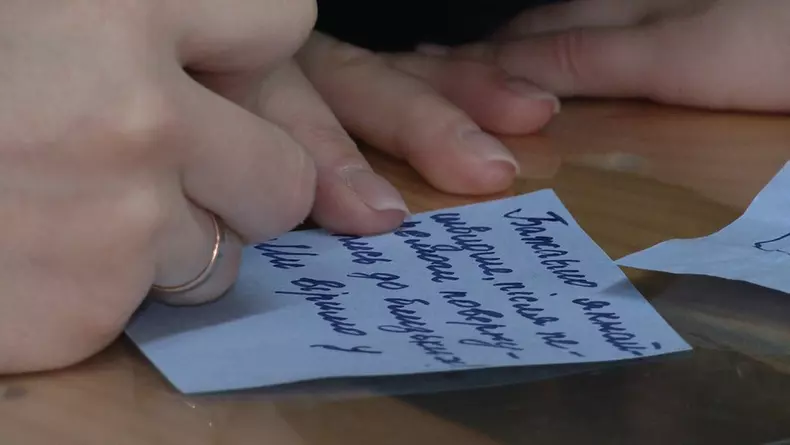 Бажаємо якнай-
швидше, після пе-
ремоги поверну-
тись до близьких!
Ми віримо у